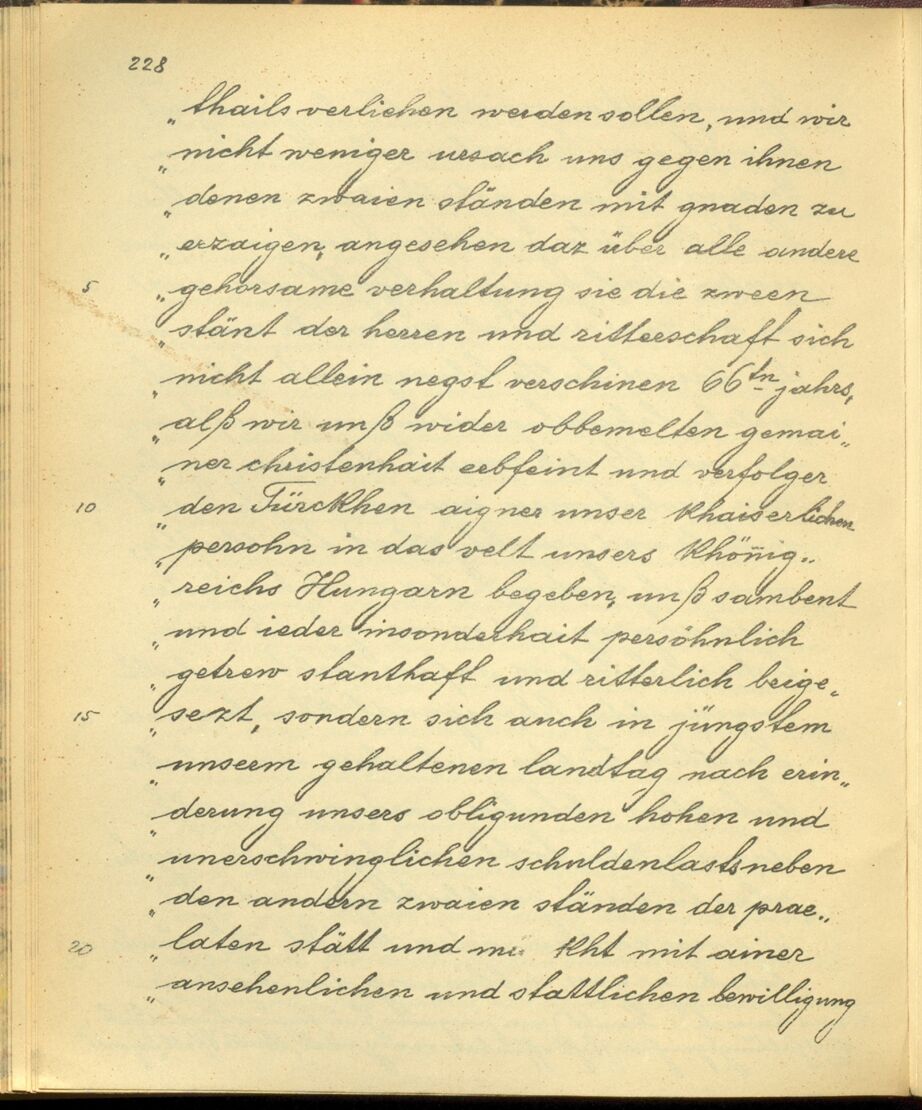 228
„thails verliehen werden sollen, und wir
„nicht weniger ursach uns gegen ihnen
„denen zwaien ständen mit gnaden zu
„erzaigen, angesehen daz über alle andere
5 „gehorsame verhaltung sie die zween
„stänt der herren und ritterschaft sich
„nicht allein negst verschinen 66tn jahrs,
„alß wir unß wider obbemelten gemai„
„ner christenhait erbfeint und verfolger
10 „den Türckhen aigner unser khaiserlichen
„persohn in das velt unsers Khönig„
„reichs Hungarn begeben, unß sambent
„und ieder insonderhait persöhnlich
„getrew stanthaft und ritterlich beige„
15 „sezt, sondern sich auch in jüngstem
„unserm gehaltenen landtag nach erin„
„derung unsers obligunden hohen und
„unerschwinglichen schuldenlasts neben
„den andern zwaien ständen der prae„
20 „laten stätt und kht mit ainer
„ansehenlichen und stattlichen bewilligung